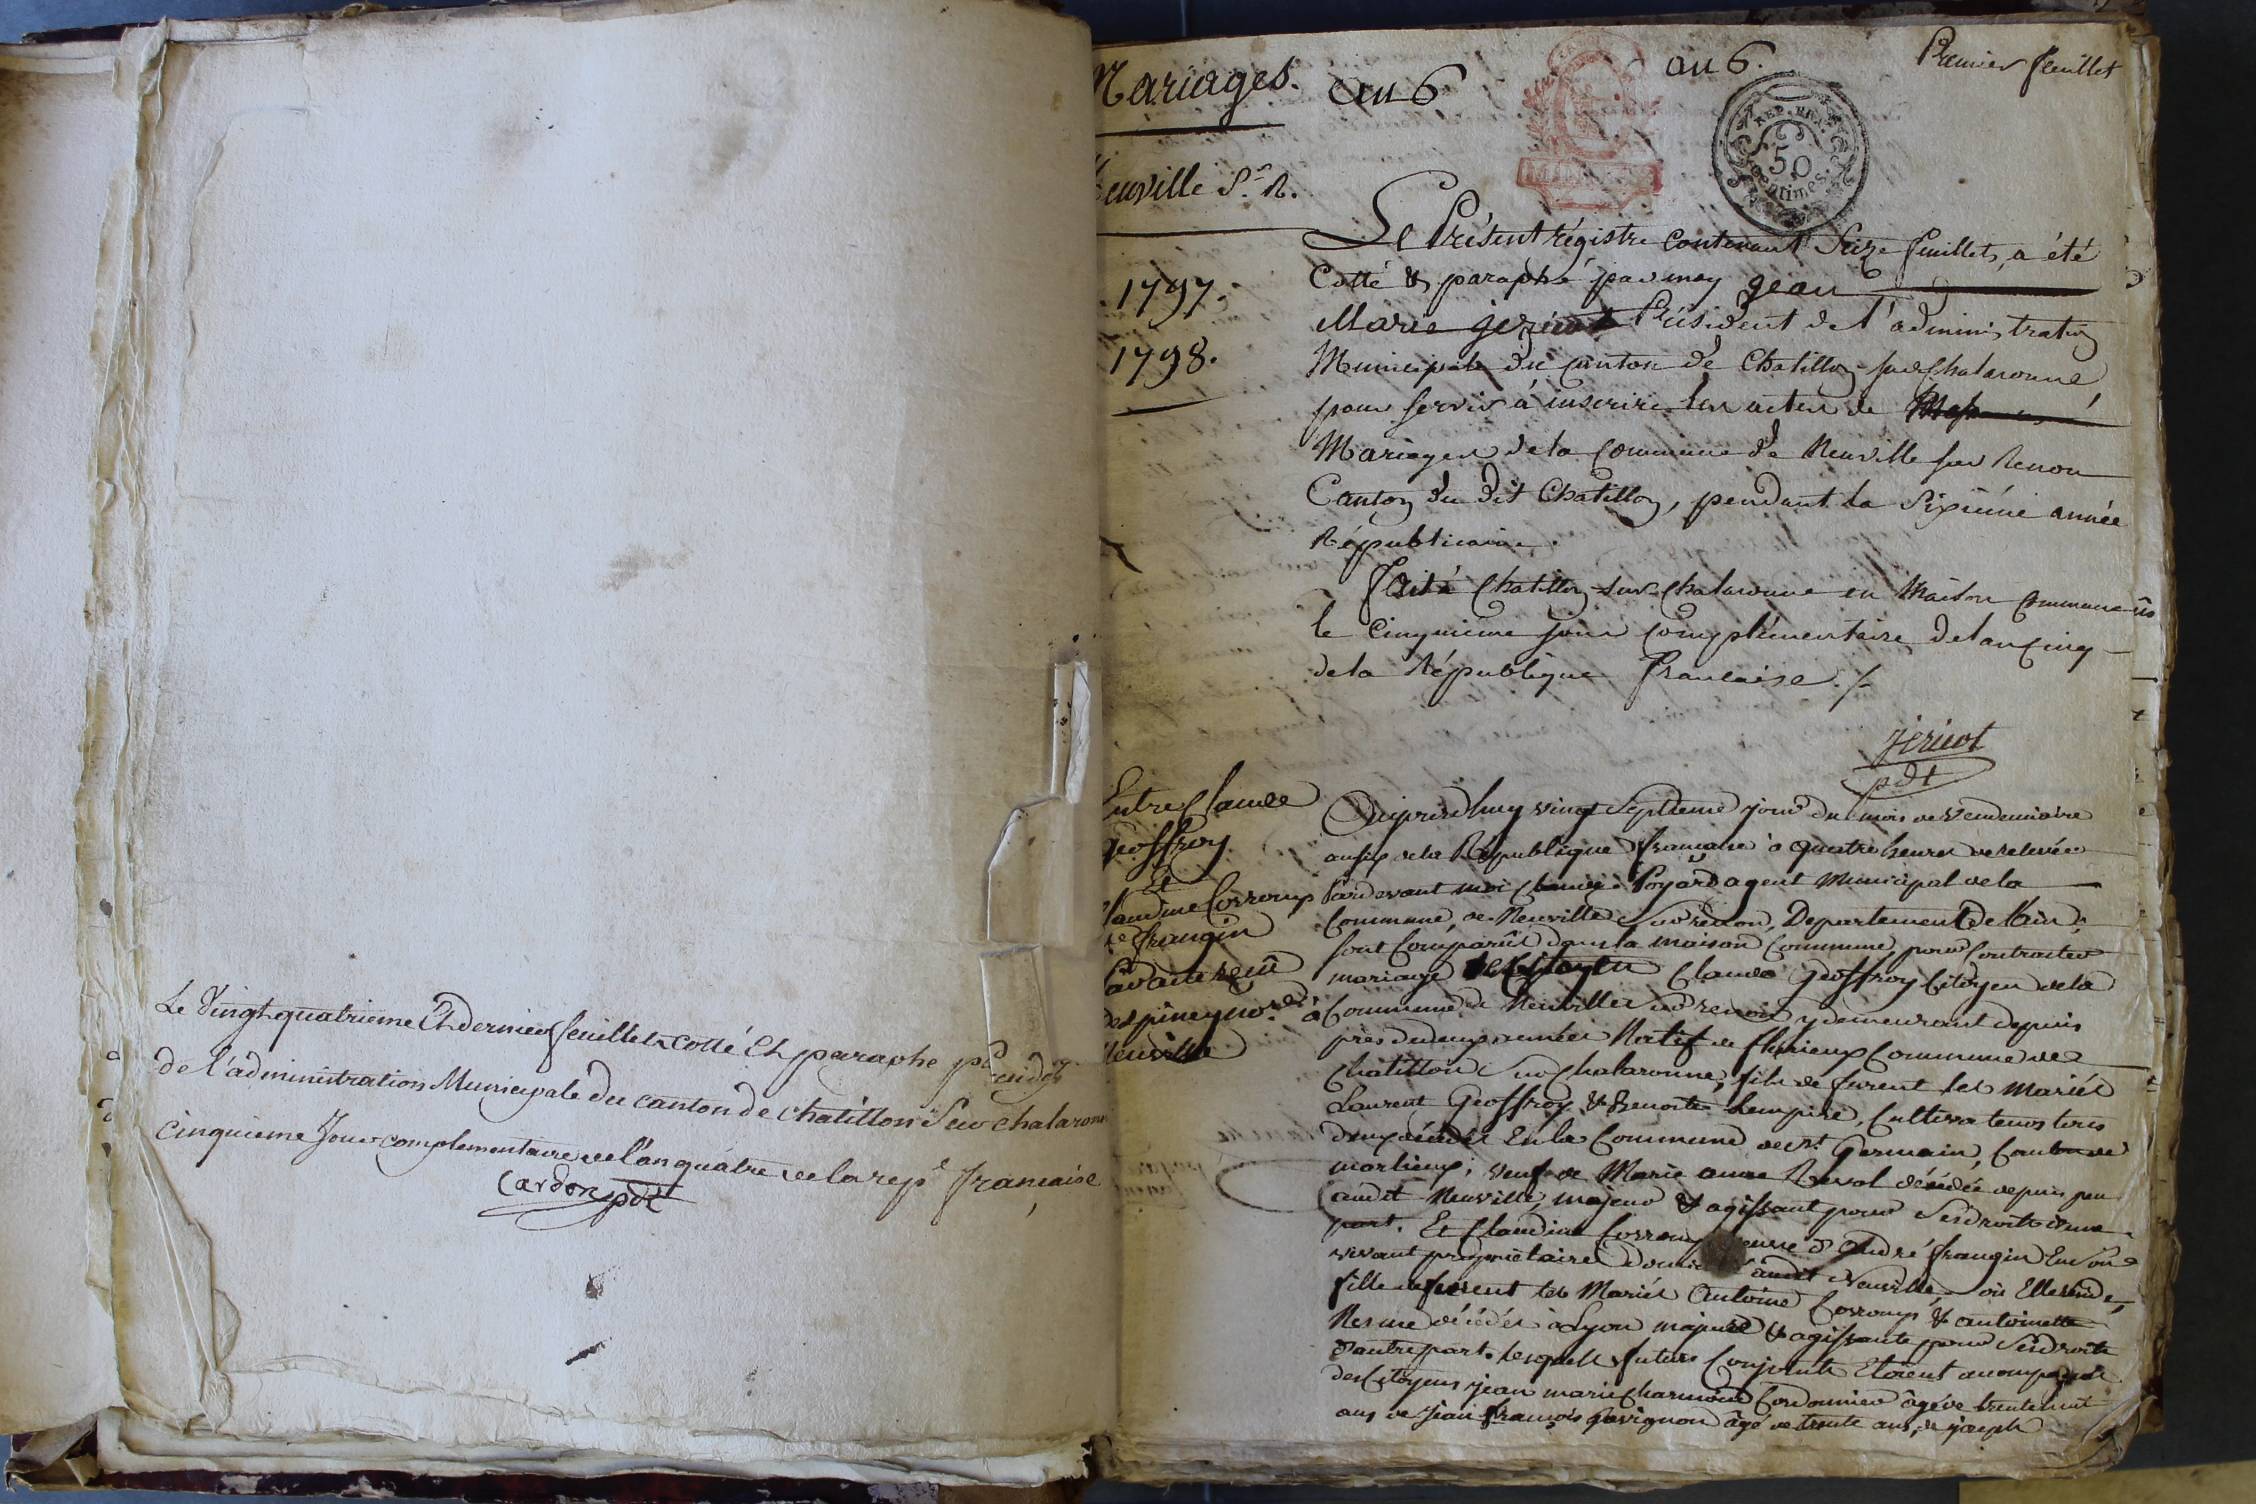 Le Vingt quatrieme Et dernier feuillet cotté Et paraphé
de l'administration Municipale du canton de chatillon Sur chalaronne
cinquieme Jour complementaire de l'an quatre de la rep.e française
Cardon pdt
Mariages. an 6
an 6.
Premier feuillet
REP. FRA.
50
Centimes.
Neuville S.r R.
1797.
1798.
Le Présent régistre Contenant Seize feuillets, a été
Cotté & paraphé par moy jean
Marie jericot Président de l'administration
Municipale du Canton de Chatillon sur Chalaronne
pour servir à inscrire les actes de
Mariages de la Commune de Neuville sur Renon
Canton du dit Chatillon, pendant la Sixiéme année
Républicaine.
Fait à Chatillon sur Chalaronne en Maison Commune
le Cinquième jour Complémentaire de l'an Cinq
de la République Francaise ./.
Jéricot
pdt
Entre Claude
Geoffroy
Et
Claudine Corroup
frangin
Neuville
Aujourdhuy vingt Septieme jour du mois de Vendemiaire
an six de la République francaise à quatre heures de relevée
Pardevant moi Poyard agent Municipal de la
Commune, de Neuville Sur renon, Departement de l'ain,
sont Comparus dans la maison Commune, pour Contracter
mariage Claude Geoffroy Citoyen de la
Commune de Neuville sur renon y demeurant depuis
près de deux années Natif de flurieux Commune de
Chatillon Sur Chalaronne, fils de furent les Mariés
Laurent Geoffroy & Benoite Lempire, Cultivateurs tous
deux décédés En la Commune de St Germain, Canton de
marlieux; veuf de Marie anne Reval décédée depuis peu
audit Neuville, majeur & agissant pour Ses droits d'une
part. Et Claudine Corroup veuve d'André frangin En Son
vivant propriétaire audit Neuville, où Elle réside,
fille de furent les Mariés Antoine Corroup & antoinette
décédés à Lyon majeure & agissante pour Ses droits
d'autre part. lesquels futurs Conjoints Etoient accompagnés
des Citoyens jean marie Cordonnier âgé de trente
ans de Jean françois âgé de trente ans, de joseph